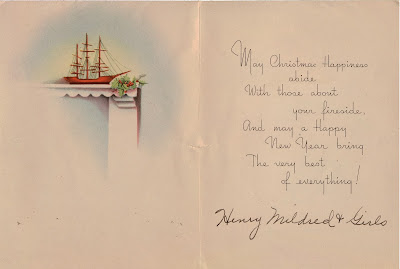 May Christmas Happiness
abide
With those about
your fireside,
And may a Happy
New Year bring
The very best
of everything!
Henry Mildred & Girls